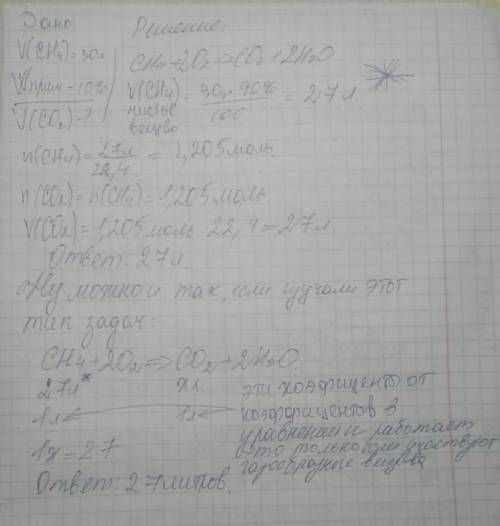 Дано:
V(CH4)=30л
Wприм-10%
V(CO2)-?
Решение:
CH4+2O2=>CO2+2H2O
V(CH4)=30л·90%/100=27л.
чистое
вещво
n(CH4)=27л/22,4=1,205моль.
n(CO2)=n(CH4)=1,205моль.
V(CO2)=1,205моль·22,4=27л
Ответ: 27л.
Ну можно и так, если изучали этот
тип задач:
CH4+2O2=>CO2+2H2O.
27л* хл.
1л 1л
1х=27
эти коэфиценты от
коэффицентов в
уравнении и работает
это только если участвуют
газообразные вещва
Ответ: 27литров.